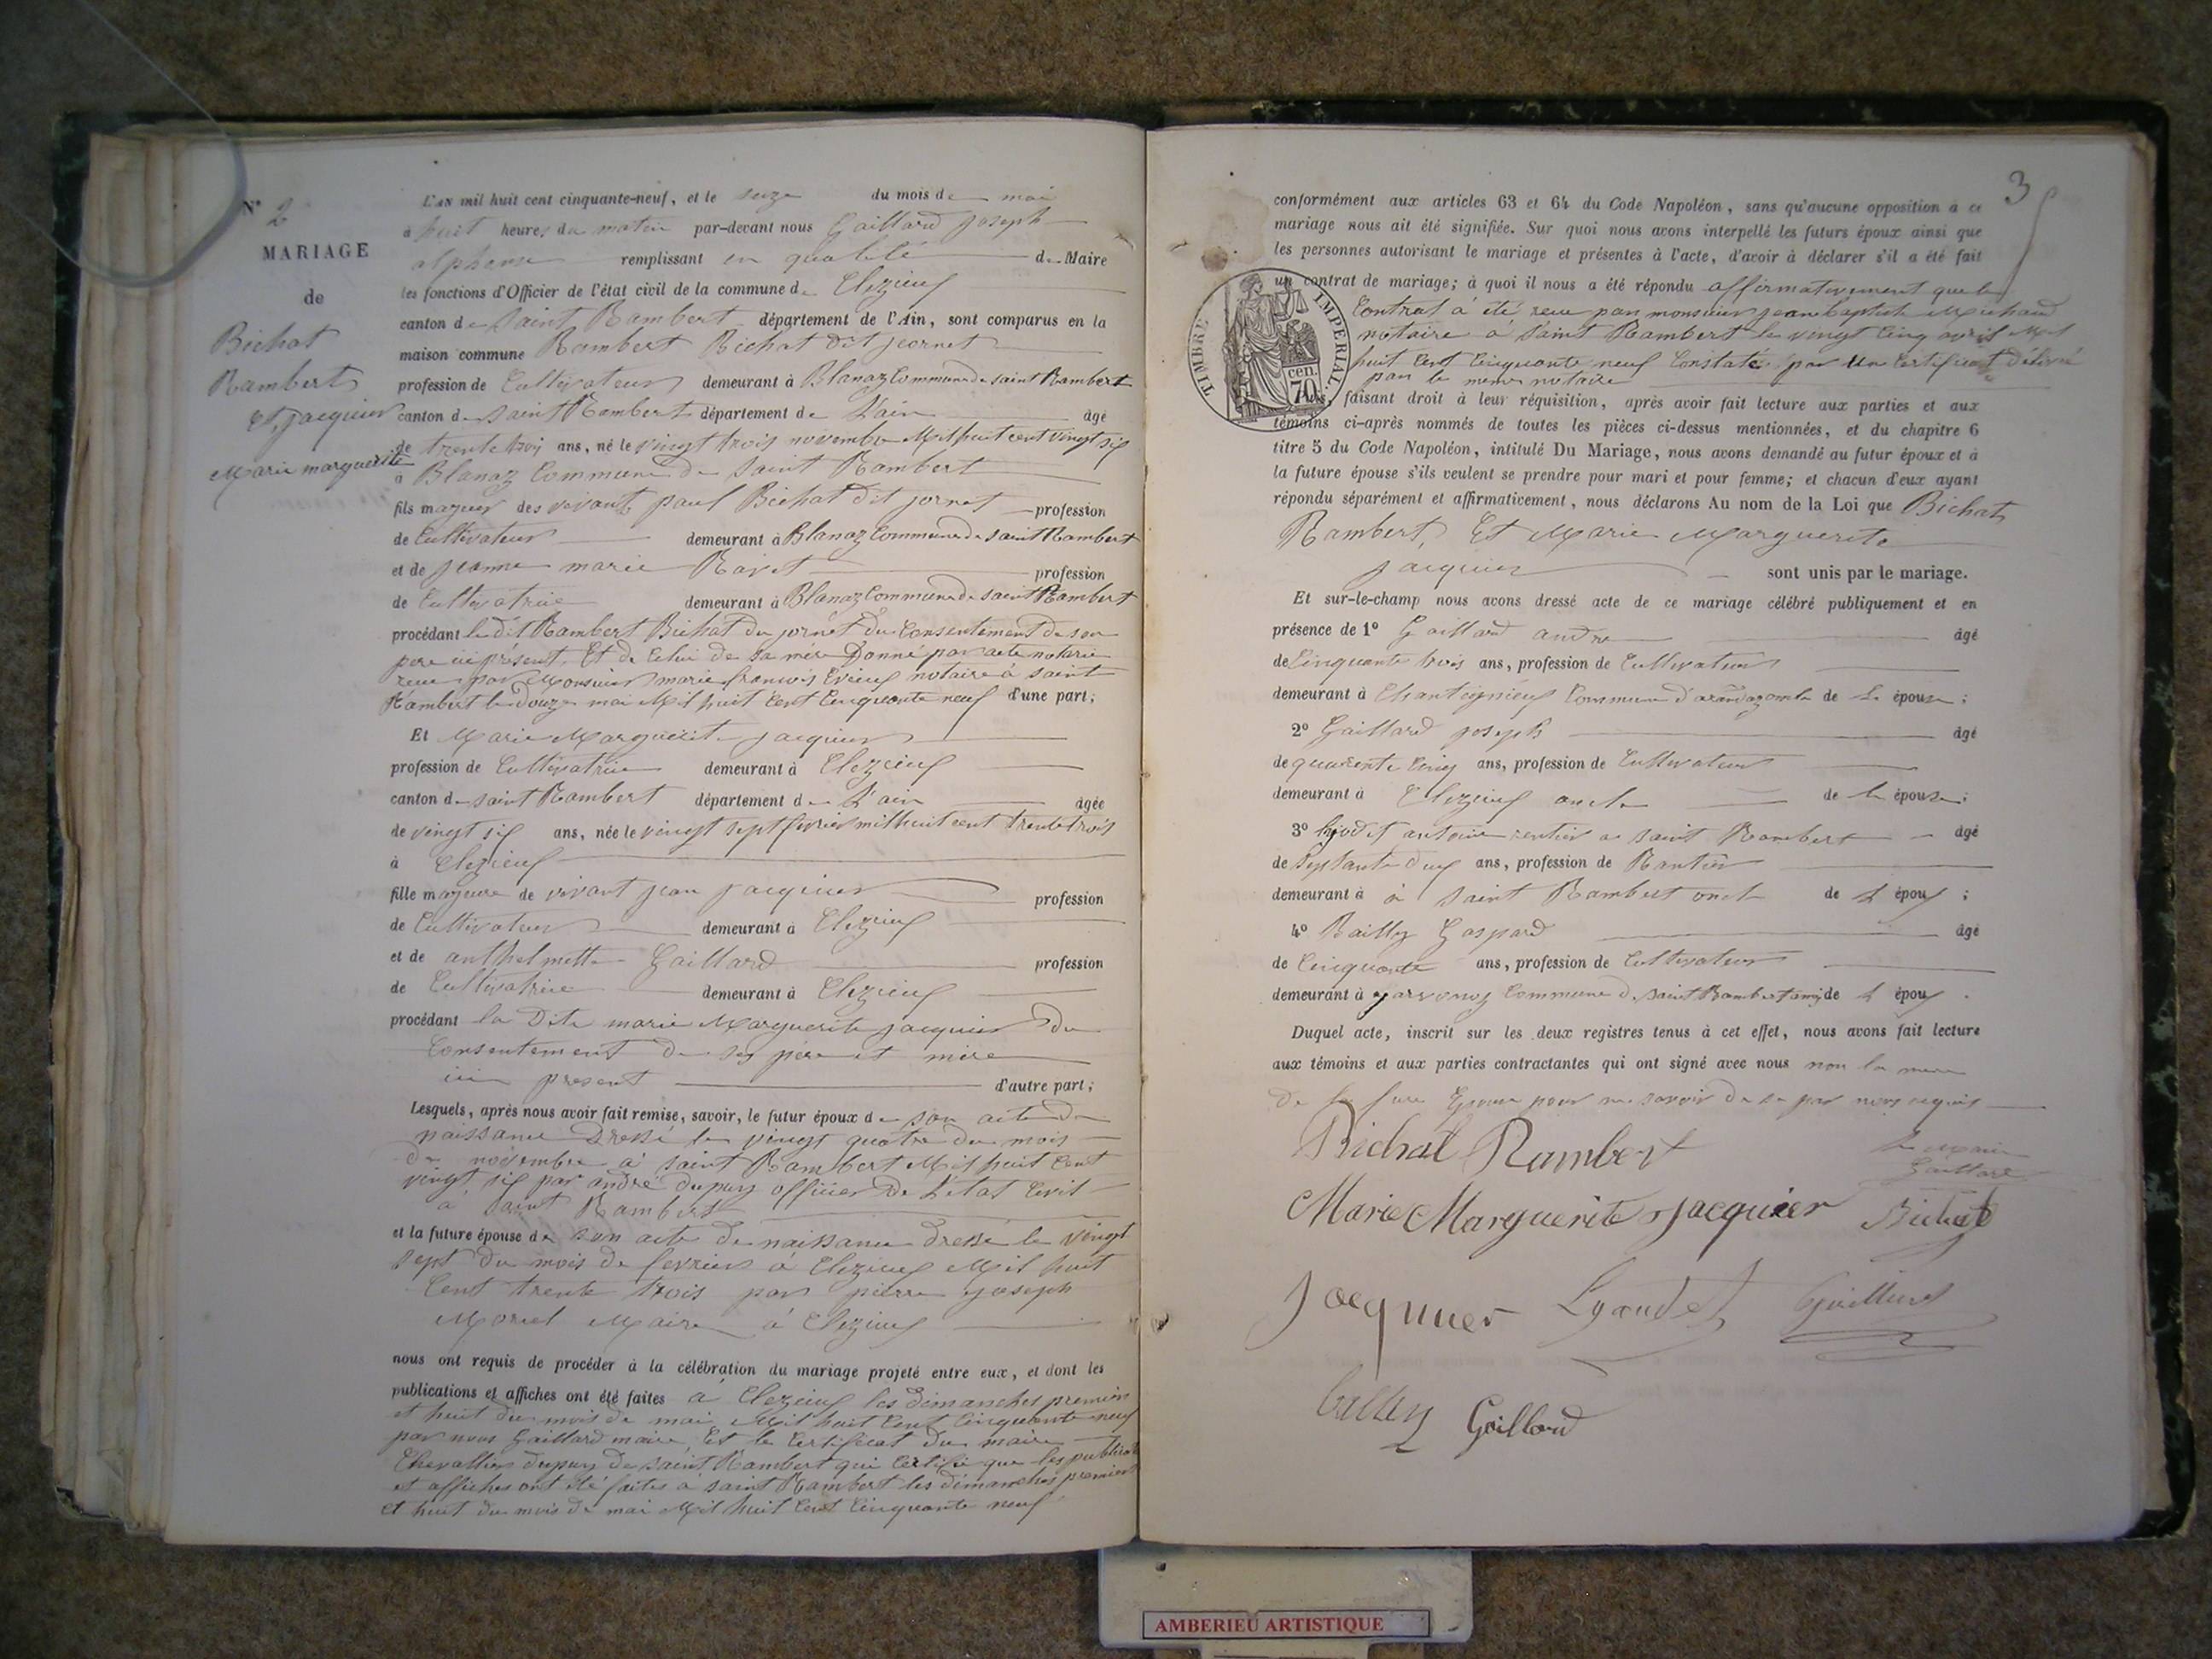 N° 2
MARIAGE
de
Bichat
Rambert
Et Jacquier
Marie marguerite
L'AN mil huit cent cinquante-neuf, et le seize du mois de mai
à huit heures du matin par-devant nous Gaillard Joseph
alphonse remplissant en qualité de Maire
les fonctions d'Officier de l'état civil de la commune de Clezieux
canton de Saint Rambert département de l'Ain, sont comparus en la
maison commune Rambert Bichat dit jornet
profession de Cultivateur demeurant à Blanaz Commune de saint Rambert
canton de saint Rambert département de L'ain âgé
de trente trois ans, né le vingt trois novembre Mil huit cent vingt six
à Blanaz Commune de Saint Rambert
fils mageur des vivant paul Bichat dit jornet profession
de Cultivateur demeurant à Blanaz Commune de saint Rambert
et de jeanne marie Ravet profession
de Cultivatrice demeurant à Blanaz Commune de saint Rambert
procédant le dit Rambert Bichat du jornet du Consentement de son
pere ici présent, Et de Celui de sa mére Donné par acte notarié
recue par Monsieur marie francois notaire à saint
Rambert le douze mai Mil huit Cent Cinquante neuf d'une part;
Et Marie Marguerite jacquier
profession de Cultivatrice demeurant à Clezieux
canton de saint Rambert département de L'ain âgée
de vingt six ans, née le vingt sept fevrier mil huit cent trente trois
à Clezieux
fille mageure de vivant jean jacquier profession
de Cultivateur demeurant à Clezieux
et de anthelmette Gaillard profession
de Cultivatrice demeurant à Clezieux
procédant la Dite marie Marguerite jacquier du
Consentement de ses père et mère
ici present d'autre part;
Lesquels, après nous avoir fait remise, savoir, le futur époux de son acte de
naissance Dressé le vingt quatre du mois
de novembre à saint Rambert Mil huit Cent
vingt six par andré dupuy officier De L'état Civil
à Saint Rambert
et la future épouse de son acte de naissance dressé le vingt
sept du mois de fevrier à Clezieux Mil huit
Cent trente trois par pierre joseph
Morel Maire à Clezieux
nous ont requis de procéder à la célébration du mariage projeté entre eux, et dont les
publications et affiches ont été faites à Clezieux les dimanches premier
et huit du mois de mai Mil huit Cent Cinquante neuf
par nous Gaillard maire, Et le Certificat du maire
Chevallier dupuy de saint Rambert qui Certifie que les publicat
et affiches ont été faites à saint Rambert les dimanches premier
et huit du mois de mai Mil huit Cent Cinquante neuf
3
conformément aux articles 63 et 64 du Code Napoléon, sans qu'aucune opposition à ce
mariage nous ait été signifiée. Sur quoi nous avons interpellé les futurs époux ainsi que
les personnes autorisant le mariage et présentes à l'acte, d'avoir à déclarer s'il a été fait
un contrat de mariage; à quoi il nous a été répondu affirmativement que le
Contrat à été recue par monsieur jean baptiste Michaud
notaire à Saint Rambert le vingt Cinq avril Mil
huit Cent Cinquante neuf Constaté par Un Certificat délivré
par le meme notaire
TIMBRE IMPÉRIAL.
70 cen.
faisant droit à leur réquisition, après avoir fait lecture aux parties et aux
témoins ci-après nommés de toutes les pièces ci-dessus mentionnées, et du chapitre 6
titre 5 du Code Napoléon, intitulé Du Mariage, nous avons demandé au futur époux et à
la future épouse s'ils veulent se prendre pour mari et pour femme; et chacun d'eux ayant
répondu séparément et affirmativement, nous déclarons Au nom de la Loi que Bichat
Rambert, Et Marie Marguerite
jacquier sont unis par le mariage.
Et sur-le-champ nous avons dressé acte de ce mariage célébré publiquement et en
présence de 1° Gaillard andre âgé
de Cinquante trois ans, profession de Cultivateur
demeurant à Chantignieux Commune d'arandaz oncle de L épouse;
2° Gaillard joseph âgé
de quarente Cinq ans, profession de Cultivateur
demeurant à Clezieux oncle de L épouse;
3° antoine rentier a saint Rambert âgé
de Septante deux ans, profession de Rantier
demeurant à à saint Rambert oncle de L époux;
4° Bailly Gaspard âgé
de Cinquante ans, profession de Cultivateur
demeurant à Commune de saint Rambert ami de L époux.
Duquel acte, inscrit sur les deux registres tenus à cet effet, nous avons fait lecture
aux témoins et aux parties contractantes qui ont signé avec nous non la mere
de la Epouse pour ne savoir de ce par nous requis
Bichat Rambert
Le Maire
Gaillard
Marie Marguerite Jacquier Bichat
Jacquier
Gaillard